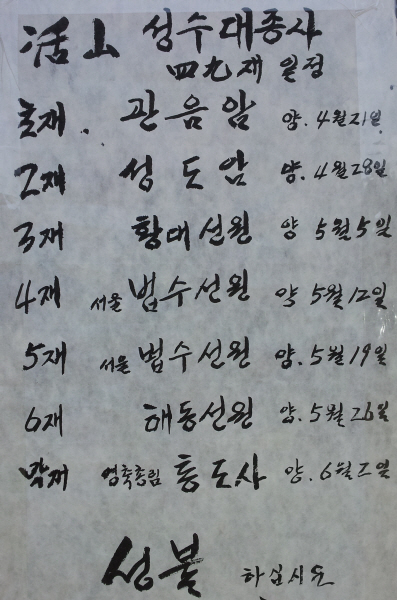 活山 성수대종사
四九재 일정
초재. 관음암 양. 4월21일
2재 성도암 양. 4월28일
3재 황대선원 양 5월5일
4재 서울 법수선원 양 5월12일
5재 서울 법수선원 양. 5월19일
6재 해동선원 양. 5월26일
막재 영축총림 통도사 양. 6월2일
성불 하십시요